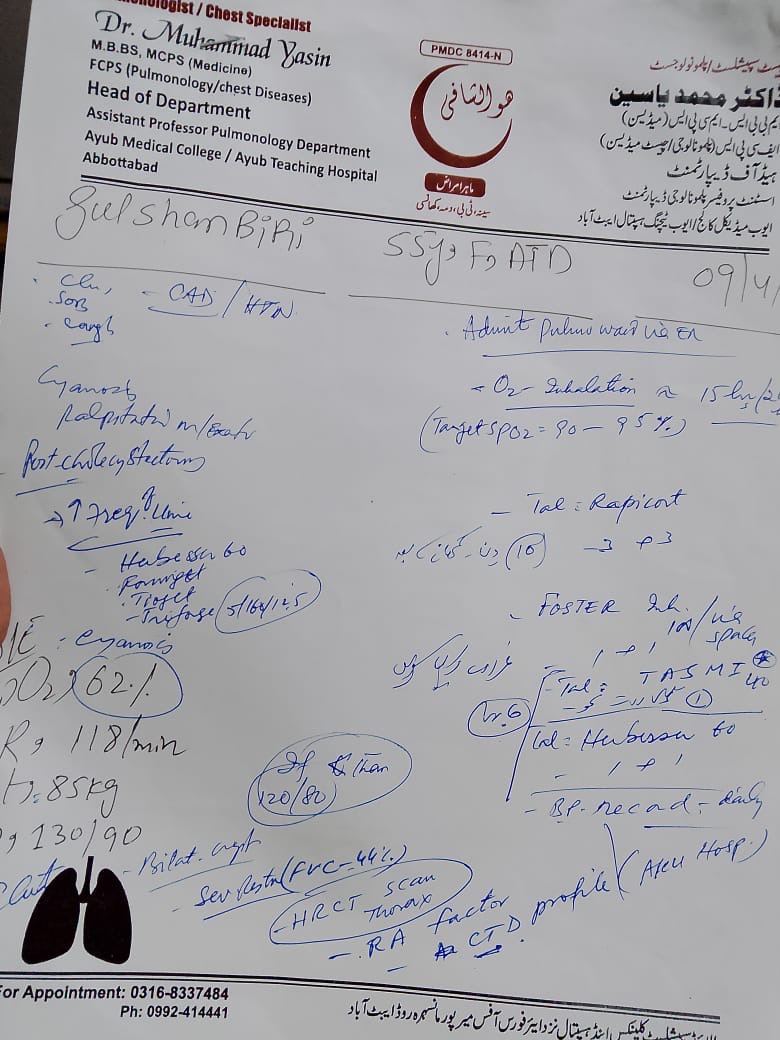 Pulmonologist / Chest Specialist
Dr. Muhammad Yasin
M.B.BS, MCPS (Medicine)
FCPS (Pulmonology/chest Diseases)
Head of Department
Assistant Professor Pulmonology Department
Ayub Medical College / Ayub Teaching Hospital
Abbottabad
PMDC 8414-N
هوالشافی
ماہرامراض
سینہ، ٹی بی، دمہ، کھانسی
چیسٹ سپیشلسٹ/پلمونولوجسٹ
ڈاکٹر محمد یاسین
ایم بی بی ایس۔ایم سی پی ایس (میڈیسن)
ایف سی پی ایس (پلمونالوجی/چیسٹ میڈیسن)
ہیڈ آف ڈیپارٹمنٹ
اسسٹنٹ پروفیسر پلمونالوجی ڈیپارٹمنٹ
ایوب میڈیکل کالج/ایوب ٹیچنگ ہسپتال ایبٹ آباد
Gulshan BiBi
55y, F, ATD
09/4/
SOB
- CAD / HTN
- cough
Cyanosis
Post-cholecystectomy
→ ↑ Freq. Urine
- Herbesser 60
5/160/12.5
: Cyanosis
62%
R, 118/min
85kg
130/90
- Bilat. crept
- Sev Restr (FVC-44%)
- HRCT scan Thorax
- RA factor
- CTD profile (AKU Hosp.)
. Admit pulmo ward via ER
- O2 Inhalation ≈ 15 hrs/2
(Target SPO2 = 90 - 95%)
- Tab = Rapicort
3 + 3
- FOSTER Inh. 100/via spacer
1 + 1
Tab = TASMI 40
Tab = Herbesser 60
- 1 + 1
- BP. Record = daily
If < than 120/80
For Appointment: 0316-8337484
Ph: 0992-414441
سپیشلسٹ کلینکس اینڈ ہسپتال نزد ایئرفورس آفس میرپور مانسہرہ روڈ ایبٹ آباد